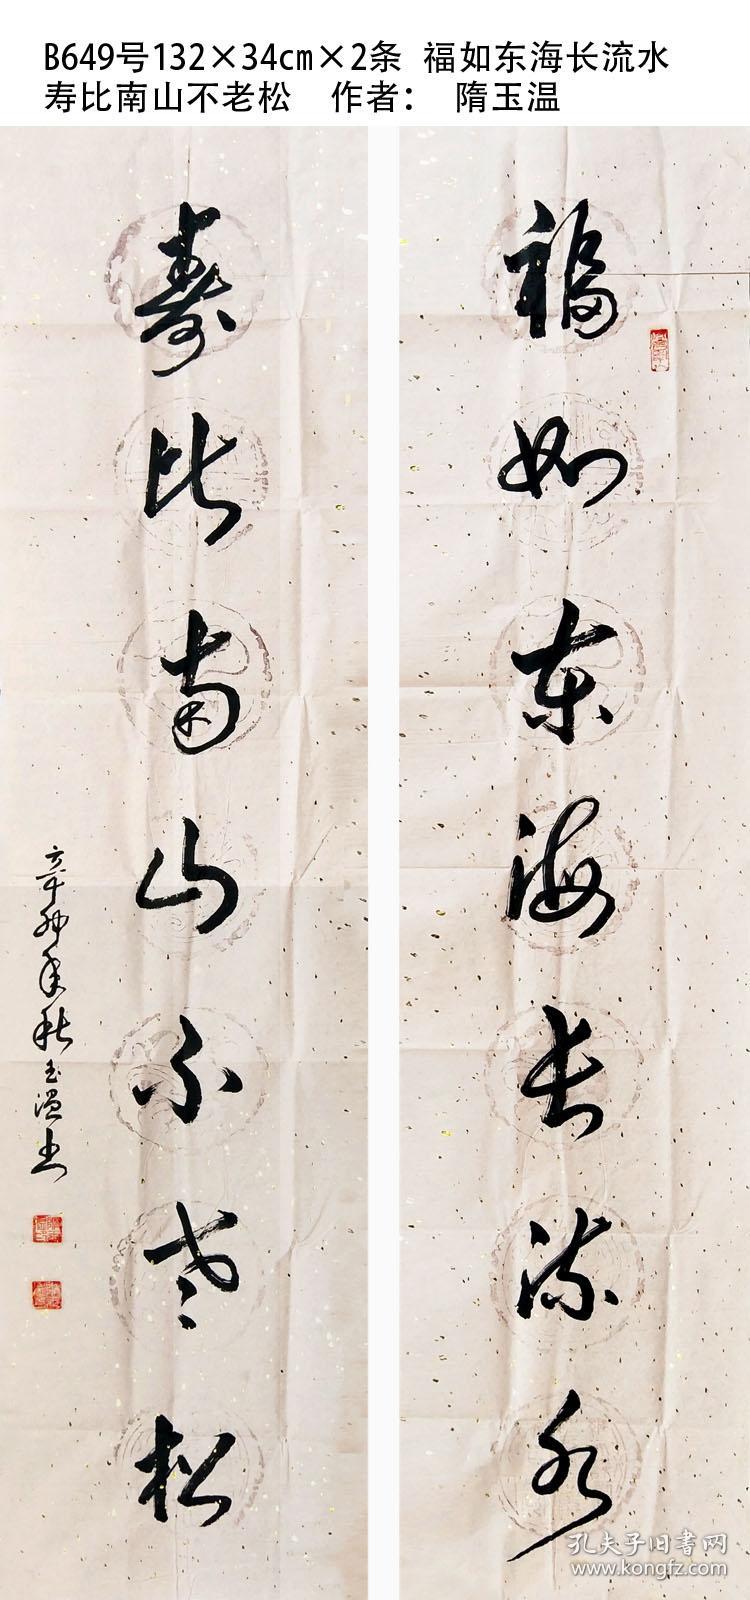 B649号132×34cm×2条 福如东海长流水
寿比南山不老松 作者： 隋玉温
福如东海长流水
壽比南山不老松
辛卯年秋玉温书
孔夫子旧书网
www.kongfz.com